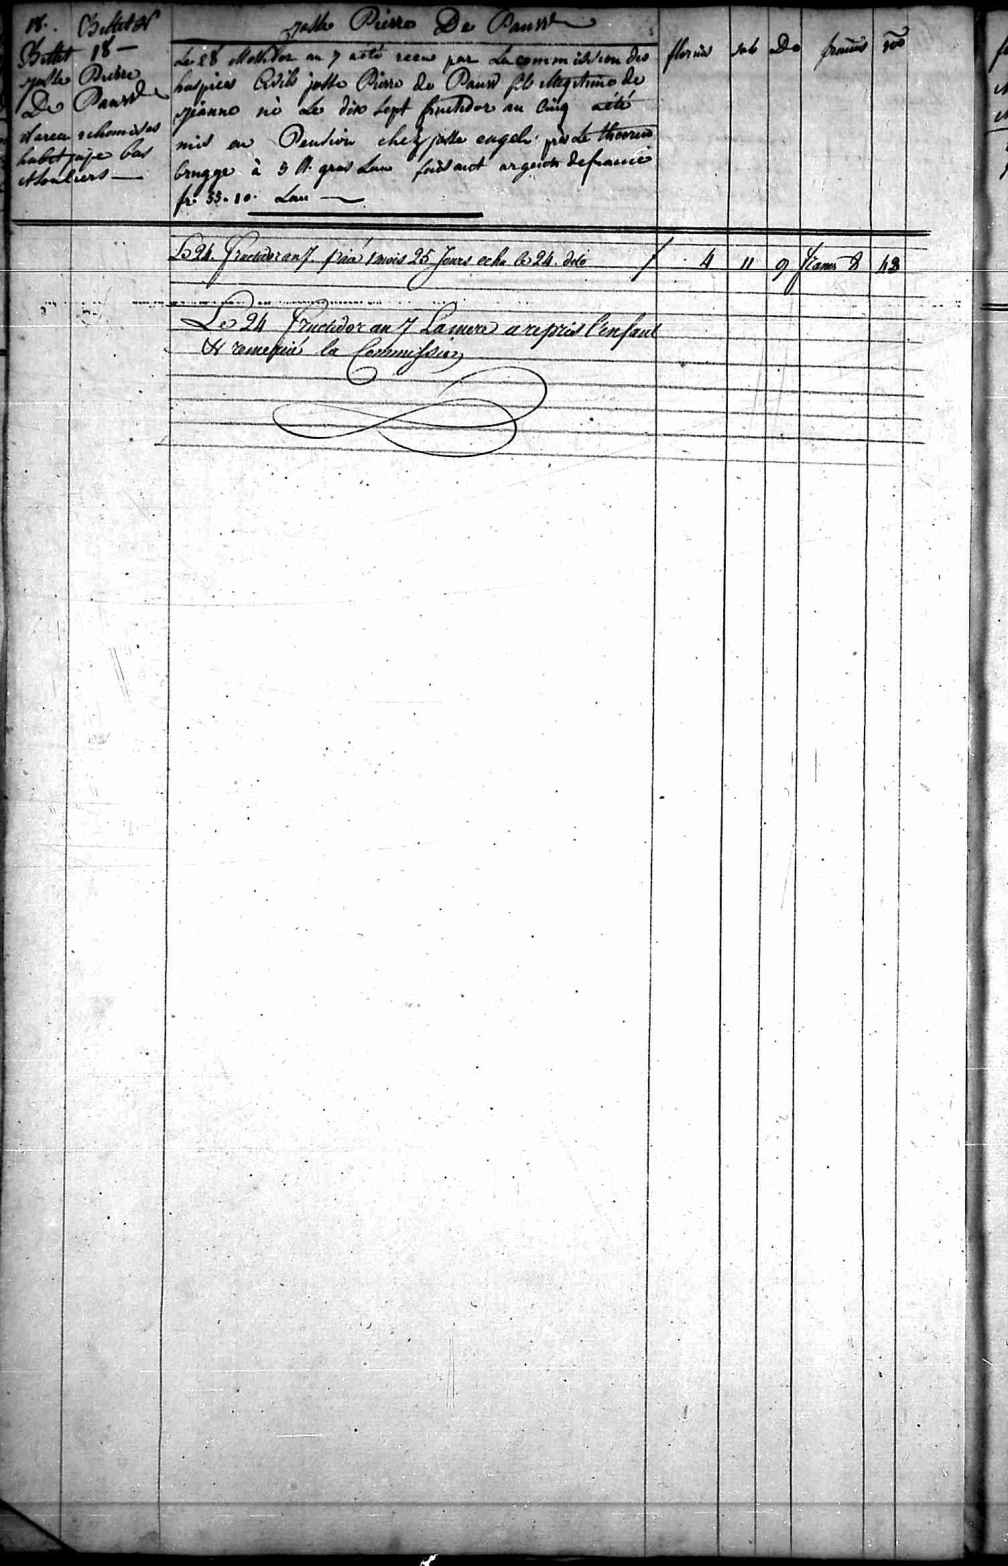 18. Billet N°
Billet 18 —
Josse Pierre
De Pauw
et bas
et souliers —
Josse Pierre De Pauw
florins sols D francs
Le 28 Messidor an 7 a été reçu par La commission des
hospices Civils josse Pierre de Pauw fils illegitime de
jeanne né Le dix Sept fructidor an Cinq a été
mis en Pension chez josse engels près Le
brugge à 3 lt. gros Lan faisant argent de france
fr. 33-10 Lan —
Le 24. fructidor an 7. paié 1 mois 25 Jours echu le 24. dito / 4 11 9 francs 8 43
Le 24 fructidor an 7 La mere a repris l'enfant
& remercié la Commission